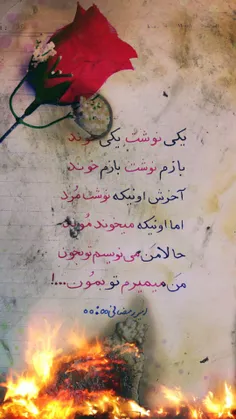 یکی نوشت یکی خوند
بازم نوشت بازم خوند
آخرش اونیکه نوشت مُرد
اما اونیکه میخوند مُرد
حالا من می نویسم تو بخون
من میمیرم تو بمُون...!